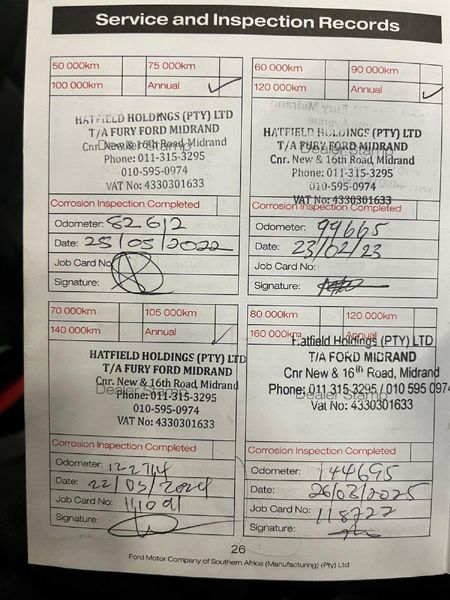 Service and Inspection Records
50 000km 75 000km
100 000km Annual ✓
HATFIELD HOLDINGS (PTY) LTD
T/A FURY FORD MIDRAND
Dealer Stamp
Cnr. New & 16th Road, Midrand
Phone: 011-315-3295
010-595-0974
VAT No: 4330301633
Corrosion Inspection Completed
Odometer: 82612
Date: 25/05/2022
Job Card No:
Signature:
60 000km 90 000km
120 000km Annual ✓
HATFIELD HOLDINGS (PTY) LTD
T/A FURY FORD MIDRAND
Dealer Stamp
Cnr. New & 16th Road, Midrand
Phone: 011-315-3295
010-595-0974
VAT No: 4330301633
Corrosion Inspection Completed
Odometer: 99665
Date: 23/02/23
Job Card No:
Signature:
70 000km 105 000km
140 000km Annual ✓
HATFIELD HOLDINGS (PTY) LTD
T/A FURY FORD MIDRAND
Cnr. New & 16th Road, Midrand
Dealer Stamp
Phone: 011-315-3295
010-595-0974
VAT No: 4330301633
Corrosion Inspection Completed
Odometer: 122744
Date: 22/03/2024
Job Card No:
Signature:
80 000km 120 000km
160 000km Annual
Hatfield Holdings (PTY) LTD
T/A FORD MIDRAND
Cnr New & 16th Road, Midrand
Phone: 011 315 3295 / 010 595 0974
Dealer Stamp
Vat No: 4330301633
Corrosion Inspection Completed
Odometer: 144695
Date: 26/03/2025
Job Card No: 118722
Signature:
26
Ford Motor Company of Southern Africa (Manufacturing) (Pty) Ltd